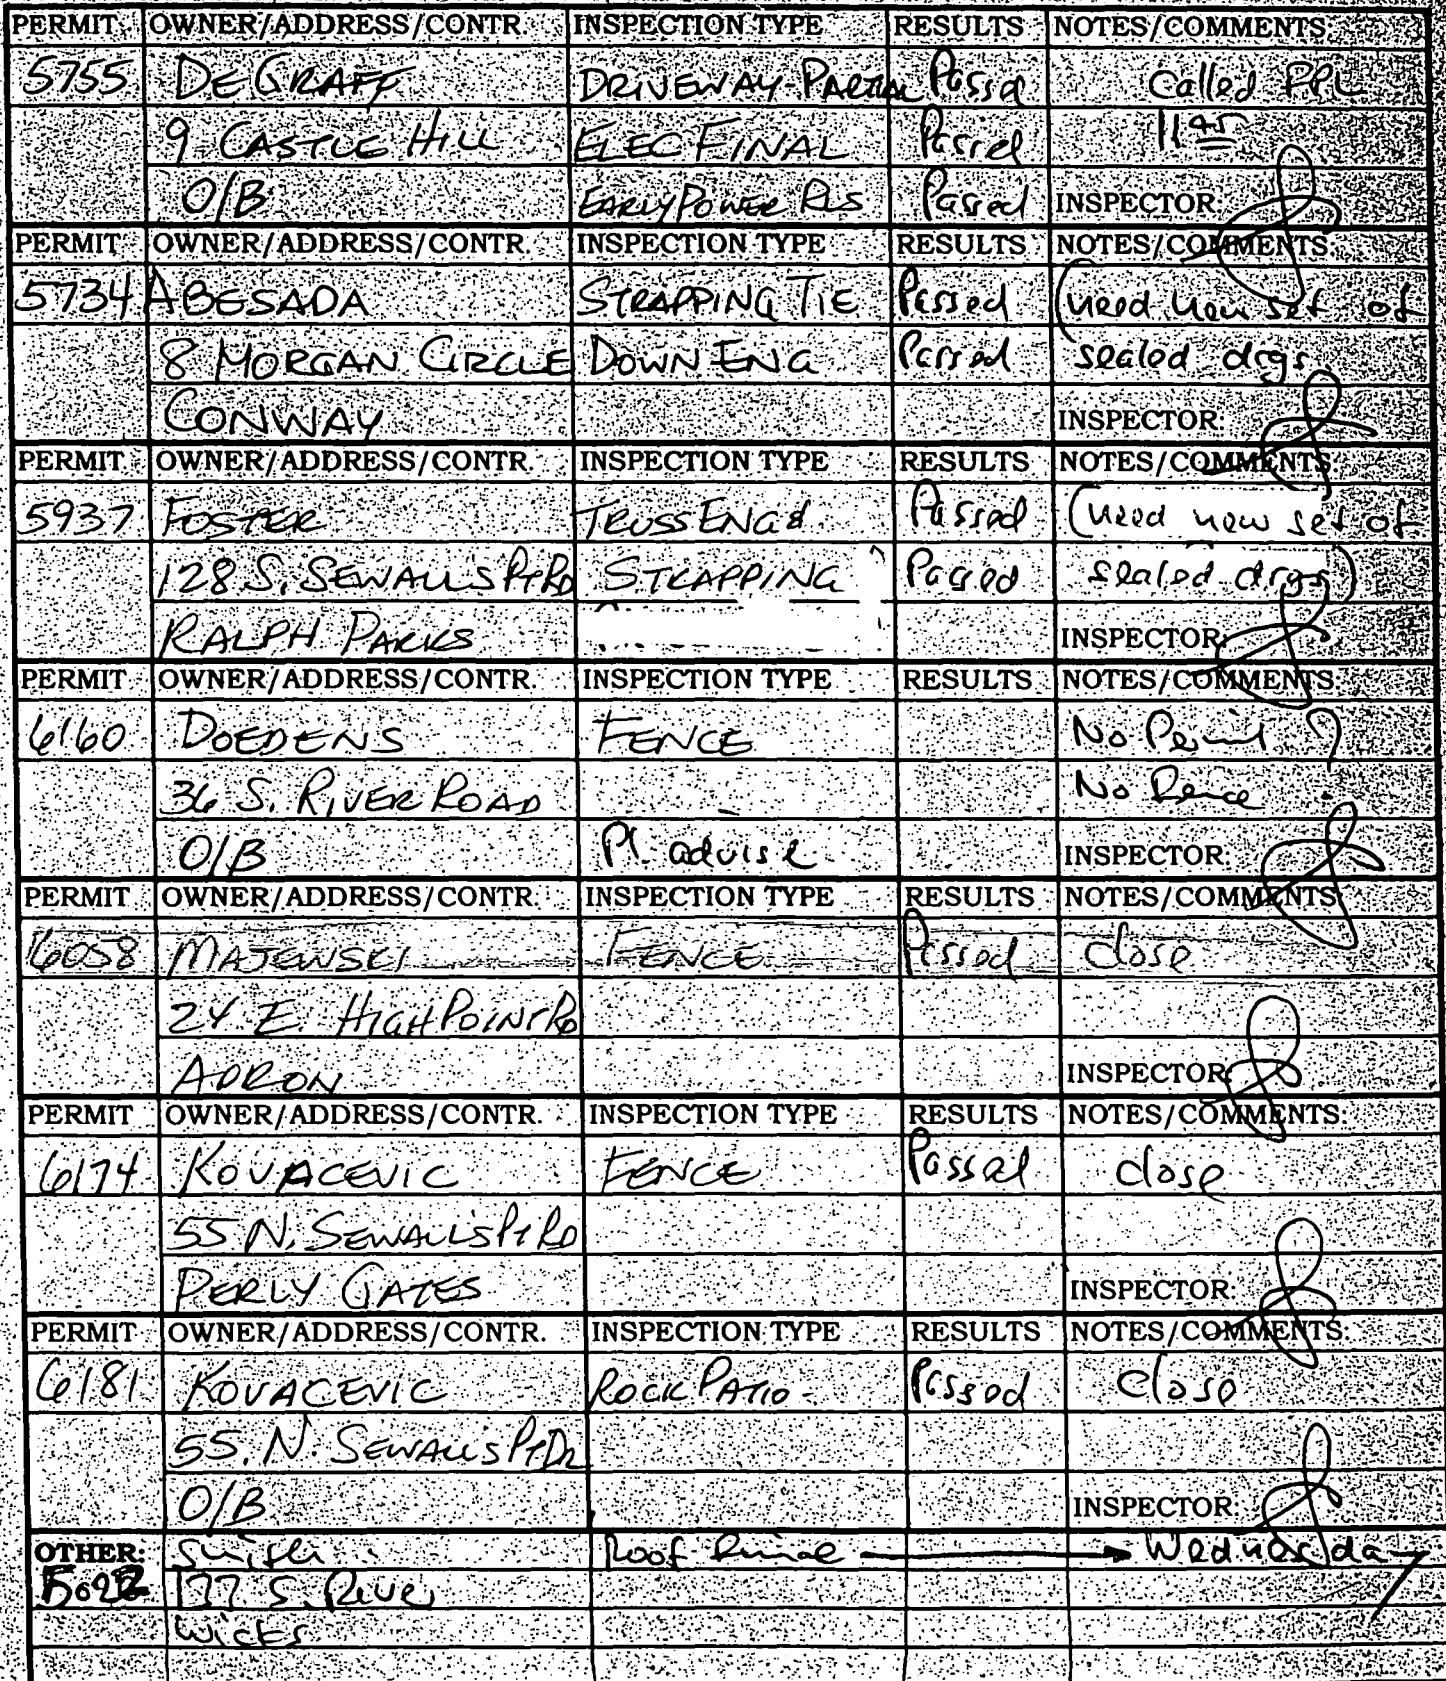 PERMIT OWNER/ADDRESS/CONTR. INSPECTION TYPE RESULTS NOTES/COMMENTS:
5755 DEGRAFF DRIVEWAY-PARTIAL Passed Called FPL
9 CASTLE HILL ELEC FINAL Passed 11 45
O/B EARLY POWER RLS Passed INSPECTOR:
PERMIT OWNER/ADDRESS/CONTR. INSPECTION TYPE RESULTS NOTES/COMMENTS:
5734 ABESADA STRAPPING TIE Passed (need new set of
8 MORGAN CIRCLE DOWN ENG Passed sealed drgs
CONWAY INSPECTOR:
PERMIT OWNER/ADDRESS/CONTR. INSPECTION TYPE RESULTS NOTES/COMMENTS:
5937 FOSTER TRUSS ENG & Passed (need new set of
128 S. SEWALLS PT RD STRAPPING Passed sealed drgs)
RALPH PARKS INSPECTOR:
PERMIT OWNER/ADDRESS/CONTR. INSPECTION TYPE RESULTS NOTES/COMMENTS:
6160 DOEDENS FENCE No Permit ?
36 S. RIVER ROAD No Fence
O/B Pl. advise INSPECTOR:
PERMIT OWNER/ADDRESS/CONTR. INSPECTION TYPE RESULTS NOTES/COMMENTS:
6058 MAJEWSKI FENCE Passed close
24 E. HIGH POINT RD
ADRON INSPECTOR:
PERMIT OWNER/ADDRESS/CONTR. INSPECTION TYPE RESULTS NOTES/COMMENTS:
6174 KOVACEVIC FENCE Passed close
55 N. SEWALL'S PT RD
PERLY GATES INSPECTOR:
PERMIT OWNER/ADDRESS/CONTR. INSPECTION TYPE RESULTS NOTES/COMMENTS:
6181 KOVACEVIC ROCK PATIO Passed close
55 N. SEWALLS PT DR
O/B INSPECTOR:
OTHER: Smith Roof Final Wednesday
177 S. River
Wicks